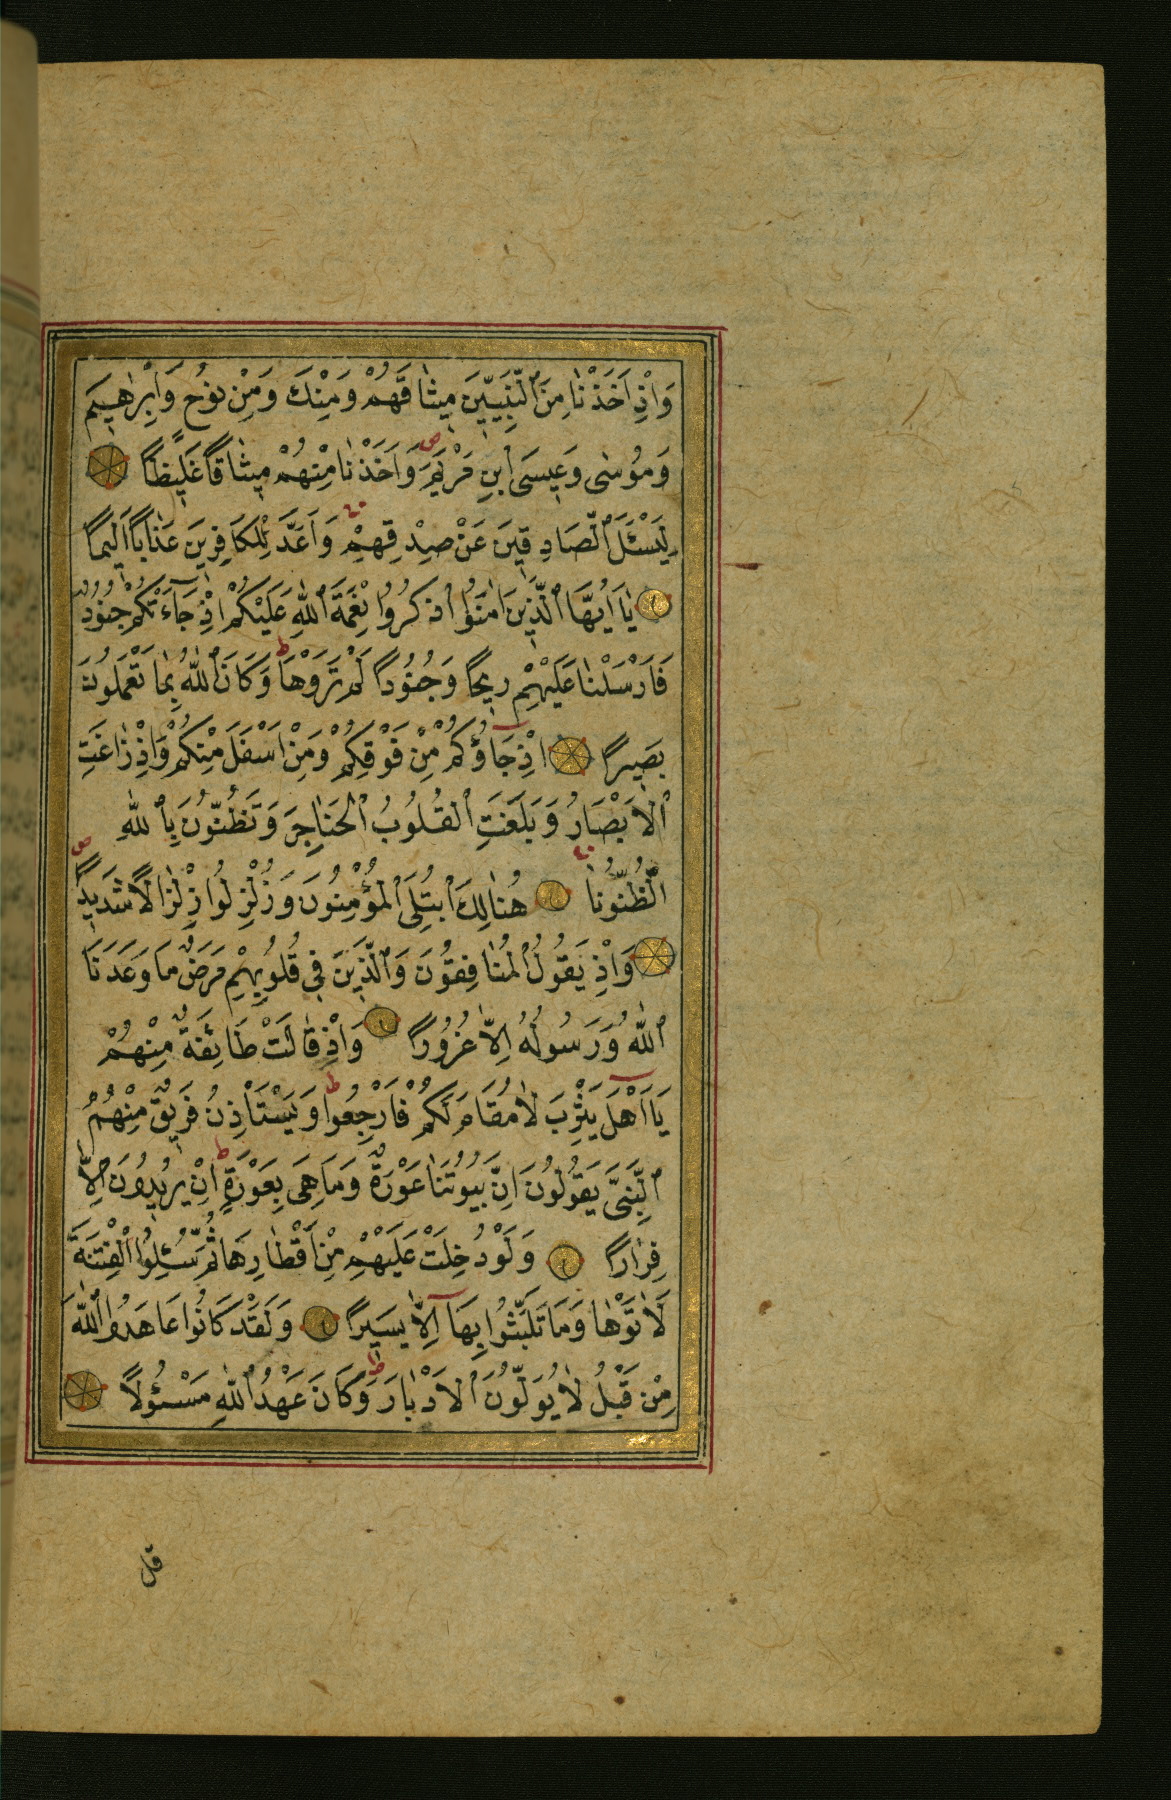 وَاِذْ اَخَذْنَا مِنَ ٱلنَّبِيّٖنَ مِيثَاقَهُمْ وَمِنْكَ وَمِنْ نُوحٍ وَاِبْرٰهِيمَ
وَمُوسٰى وَعِيسَى ٱبْنِ مَرْيَمَ ص وَاَخَذْنَا مِنْهُمْ مِيثَاقًا غَلِيظًا
لِيَسْئَلَ ٱلصَّادِقِينَ عَنْ صِدْقِهِمْ وَاَعَدَّ لِلْكَافِرِينَ عَذَابًا اَلِيمًا
يَا اَيُّهَا ٱلَّذِينَ اٰمَنُوا ٱذْكُرُوا نِعْمَةَ ٱللّٰهِ عَلَيْكُمْ اِذْ جَآءَتْكُمْ جُنُودٌ
فَاَرْسَلْنَا عَلَيْهِمْ رِيحًا وَجُنُودًا لَمْ تَرَوْهَا ط وَكَانَ ٱللّٰهُ بِمَا تَعْمَلُونَ
بَصِيرًا اِذْ جَآؤُكُمْ مِنْ فَوْقِكُمْ وَمِنْ اَسْفَلَ مِنْكُمْ وَاِذْ زَاغَتِ
ٱلْاَبْصَارُ وَبَلَغَتِ ٱلْقُلُوبُ ٱلْحَنَاجِرَ وَتَظُنُّونَ بِٱللّٰهِ
ٱلظُّنُونَا هُنَالِكَ ٱبْتُلِىَ ٱلْمُؤْمِنُونَ وَزُلْزِلُوا زِلْزَالًا شَدِيدًا ص
وَاِذْ يَقُولُ ٱلْمُنَافِقُونَ وَٱلَّذِينَ فِى قُلُوبِهِمْ مَرَضٌ مَا وَعَدَنَا
ٱللّٰهُ وَرَسُولُهُ اِلَّا غُرُورًا وَاِذْ قَالَتْ طَائِفَةٌ مِنْهُمْ
يَا اَهْلَ يَثْرِبَ لَا مُقَامَ لَكُمْ فَارْجِعُوا ط وَيَسْتَاْذِنُ فَرِيقٌ مِنْهُمُ
ٱلنَّبِىَّ يَقُولُونَ اِنَّ بُيُوتَنَا عَوْرَةٌ وَمَا هِىَ بِعَوْرَةٍ ط اِنْ يُرِيدُونَ اِلَّا
فِرَارًا وَلَوْ دُخِلَتْ عَلَيْهِمْ مِنْ اَقْطَارِهَا ثُمَّ سُئِلُوا ٱلْفِتْنَةَ
لَاٰتَوْهَا وَمَا تَلَبَّثُوا بِهَا اِلَّا يَسِيرًا وَلَقَدْ كَانُوا عَاهَدُوا ٱللّٰهَ
مِنْ قَبْلُ لَا يُوَلُّونَ ٱلْاَدْبَارَ ط وَكَانَ عَهْدُ ٱللّٰهِ مَسْئُولًا
قل